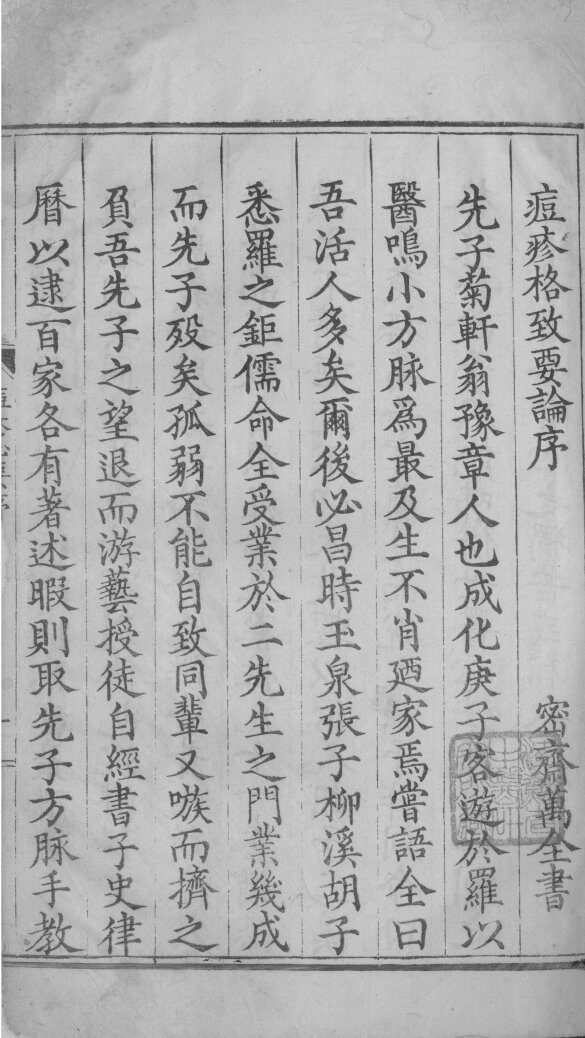 痘疹格致要論序
密齋萬全書
先子菊軒翁豫章人也成化庚子客遊於羅以
醫鳴小方脉爲最及生不肖廼家焉嘗語全曰
吾活人多矣爾後必昌時玉泉張子柳溪胡子
悉羅之鉅儒命全受業於二先生之門業幾成
而先子歿矣孤弱不能自致同輩又嗾而擠之
負吾先子之望退而游藝授徒自經書子史律
曆以逮百家各有著述暇則取先子方脉手教